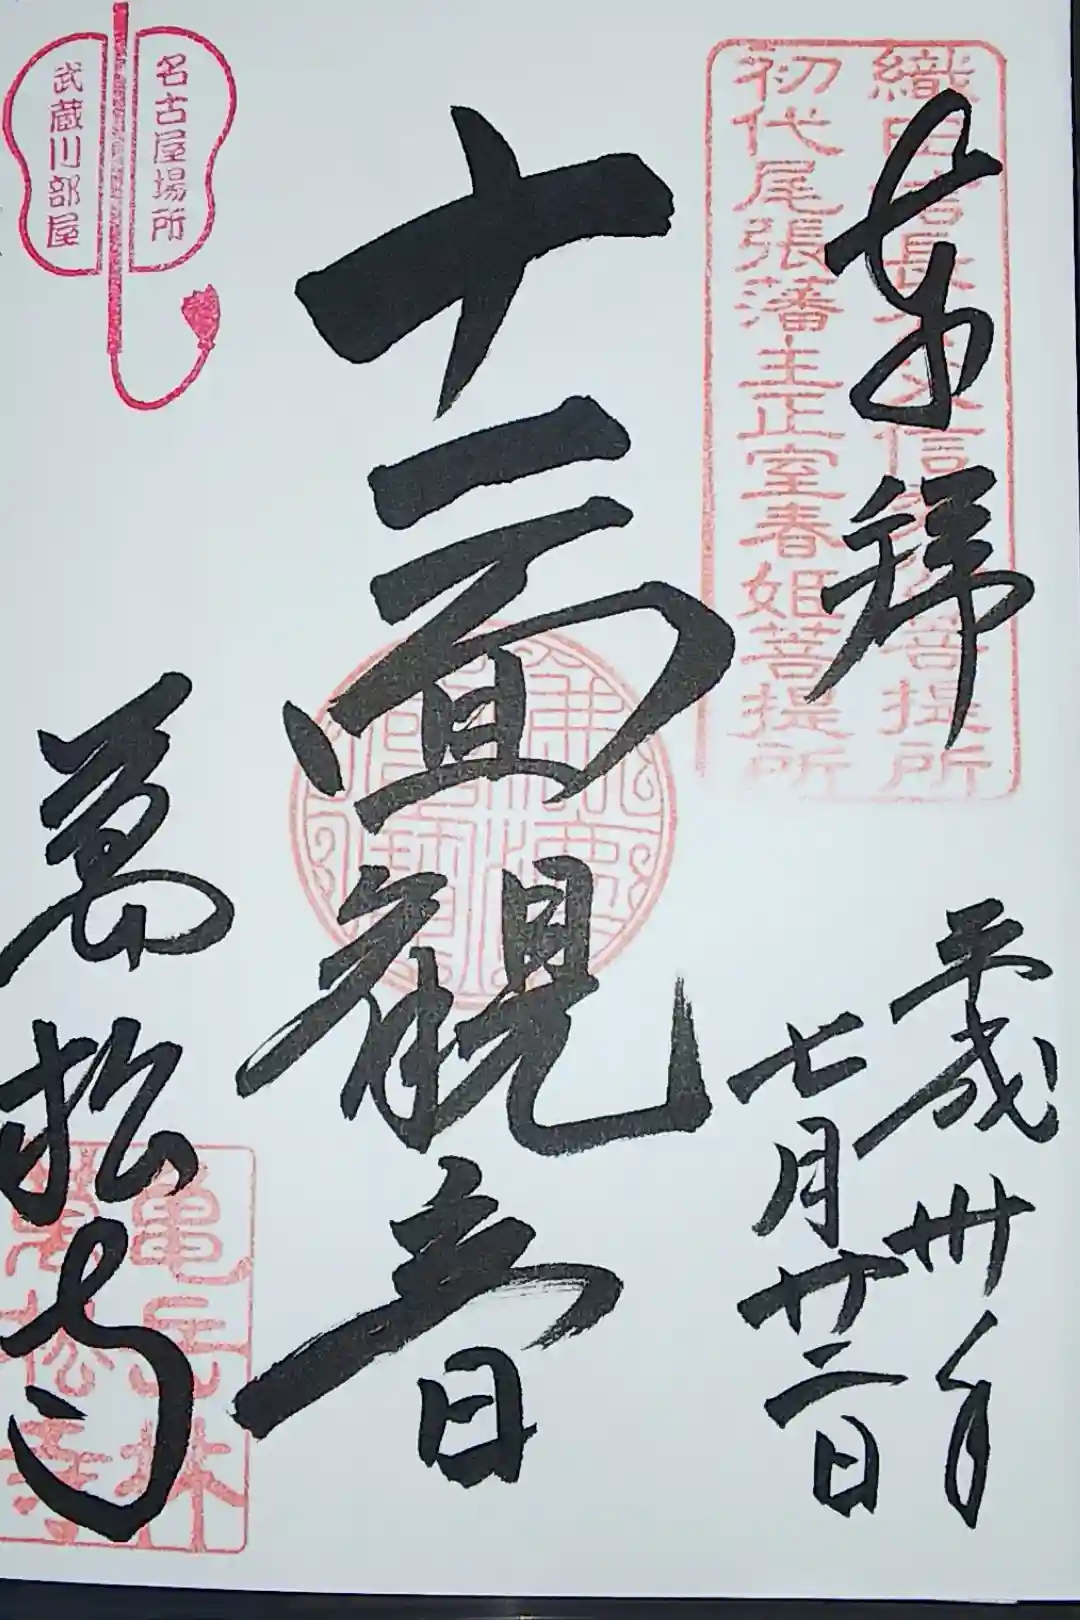 奉拝
平成卅年
七月廿二日
織田信長父信秀公菩提所
初代尾張藩主正室春姫菩提所
十一面観音
萬松寺
亀岳林
萬松寺
名古屋場所
武蔵川部屋